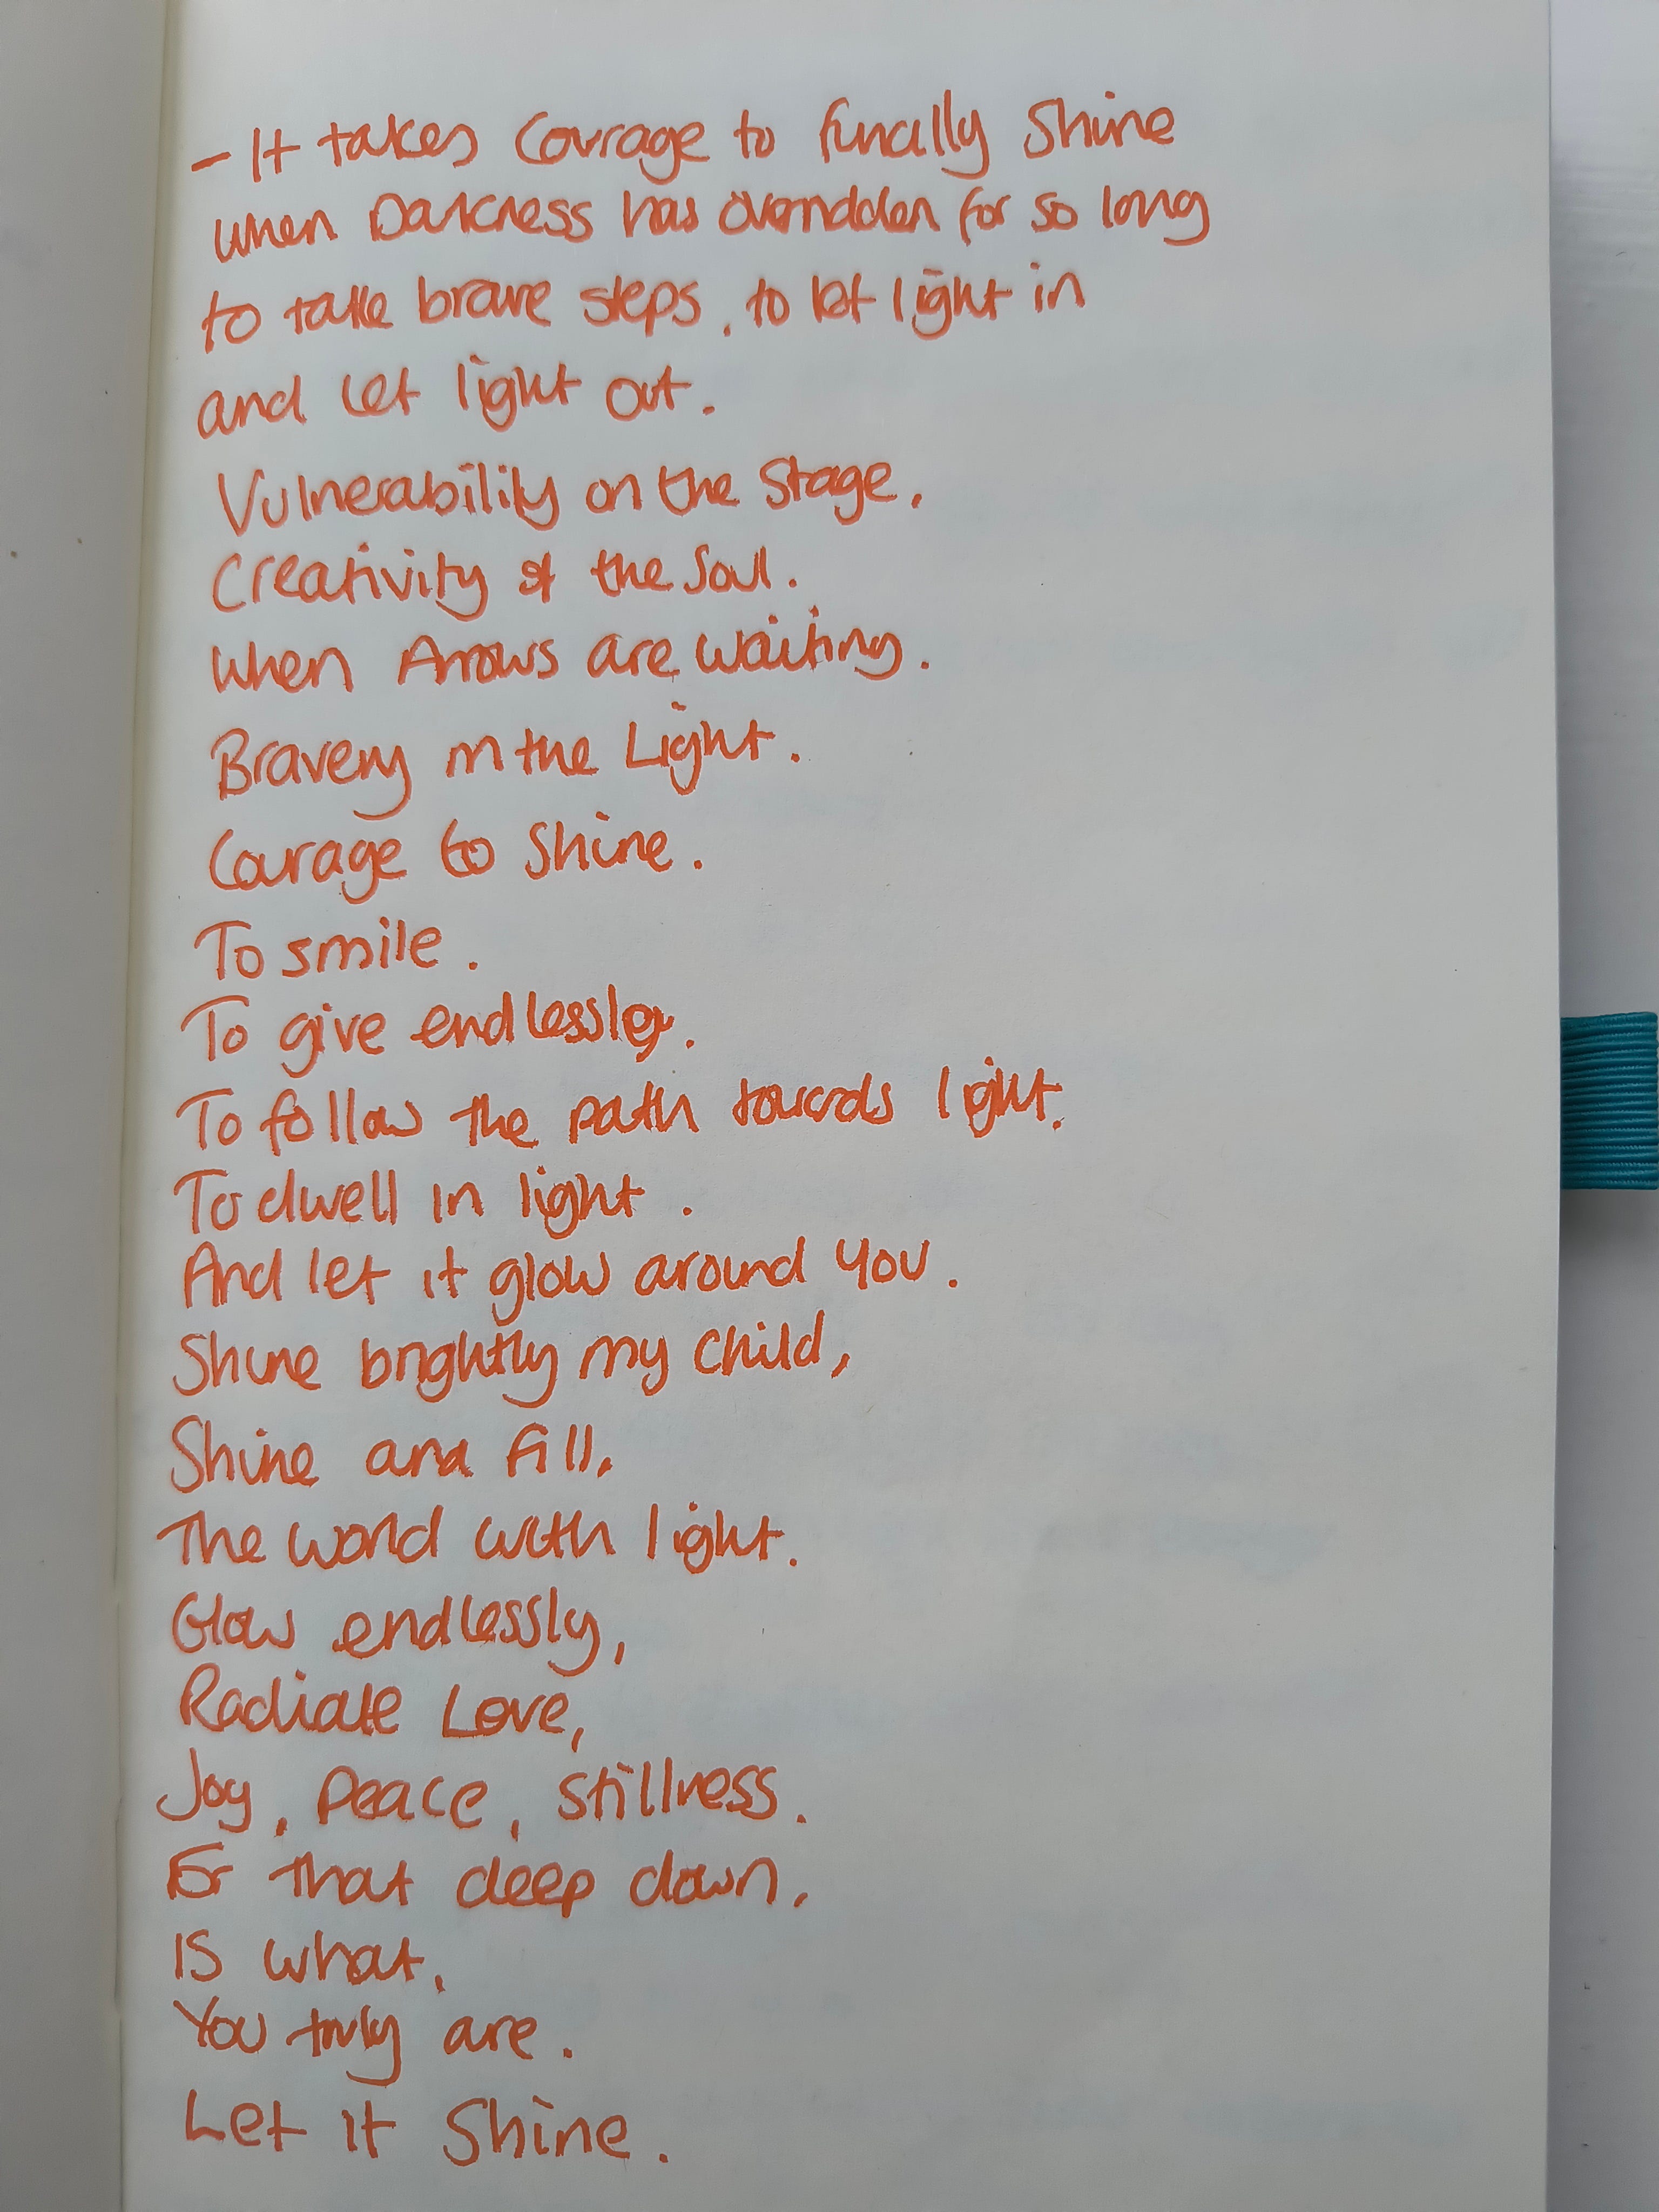 - It takes Courage to finally Shine
when Darkness has overridden for so long
to take brave steps, to let light in
and let light out.
Vulnerability on the Stage.
Creativity of the Soul.
When Arrows are waiting.
Bravery in the Light.
Courage to Shine.
To smile.
To give endlessly.
To follow the path towards light.
To dwell in light.
And let it glow around you.
Shine brightly my child,
Shine and fill,
The world with light.
Glow endlessly,
Radiate Love,
Joy, Peace, stillness.
For that deep down,
Is what,
You truly are.
Let it Shine.